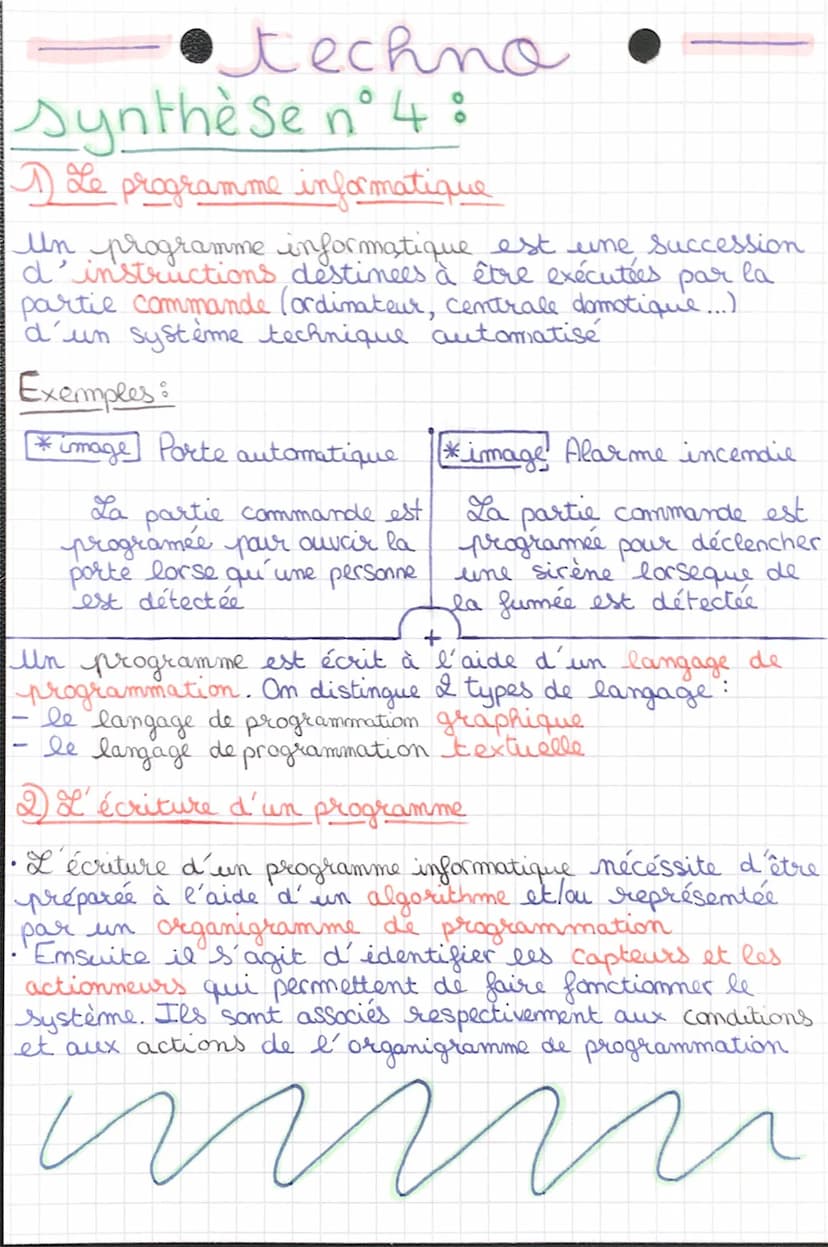 techno
synthèse n° 4 :
1) Le programme informatique
Un programme informatique est une succession
d'instructions destinées à être exécutées par la
partie commande (ordinateur, centrale domotique...)
d'un système technique automatisé
Exemples :
*image Porte automatique
La partie commande est
programée pour ouvrir la
porte lorse qu'une personne
est détectée
*image Alarme incendie
La partie commande est
programée pour déclencher
une sirène lorseque de
la fumée est détectée
+
Un programme est écrit à l'aide d'un langage de
programmation. On distingue 2 types de langage :
- le langage de programmation graphique
- le langage de programmation textuelle
2) L'écriture d'un programme
• L'écriture d'un programme informatique nécéssite d'être
préparée à l'aide d'un algorithme et/ou représentée
par un organigramme de programmation
• Ensuite il s'agit d'identifier les capteurs et les
actionneurs qui permettent de faire fonctionner le
système. Ils sont associés respectivement aux conditions
et aux actions de l'organigramme de programmation